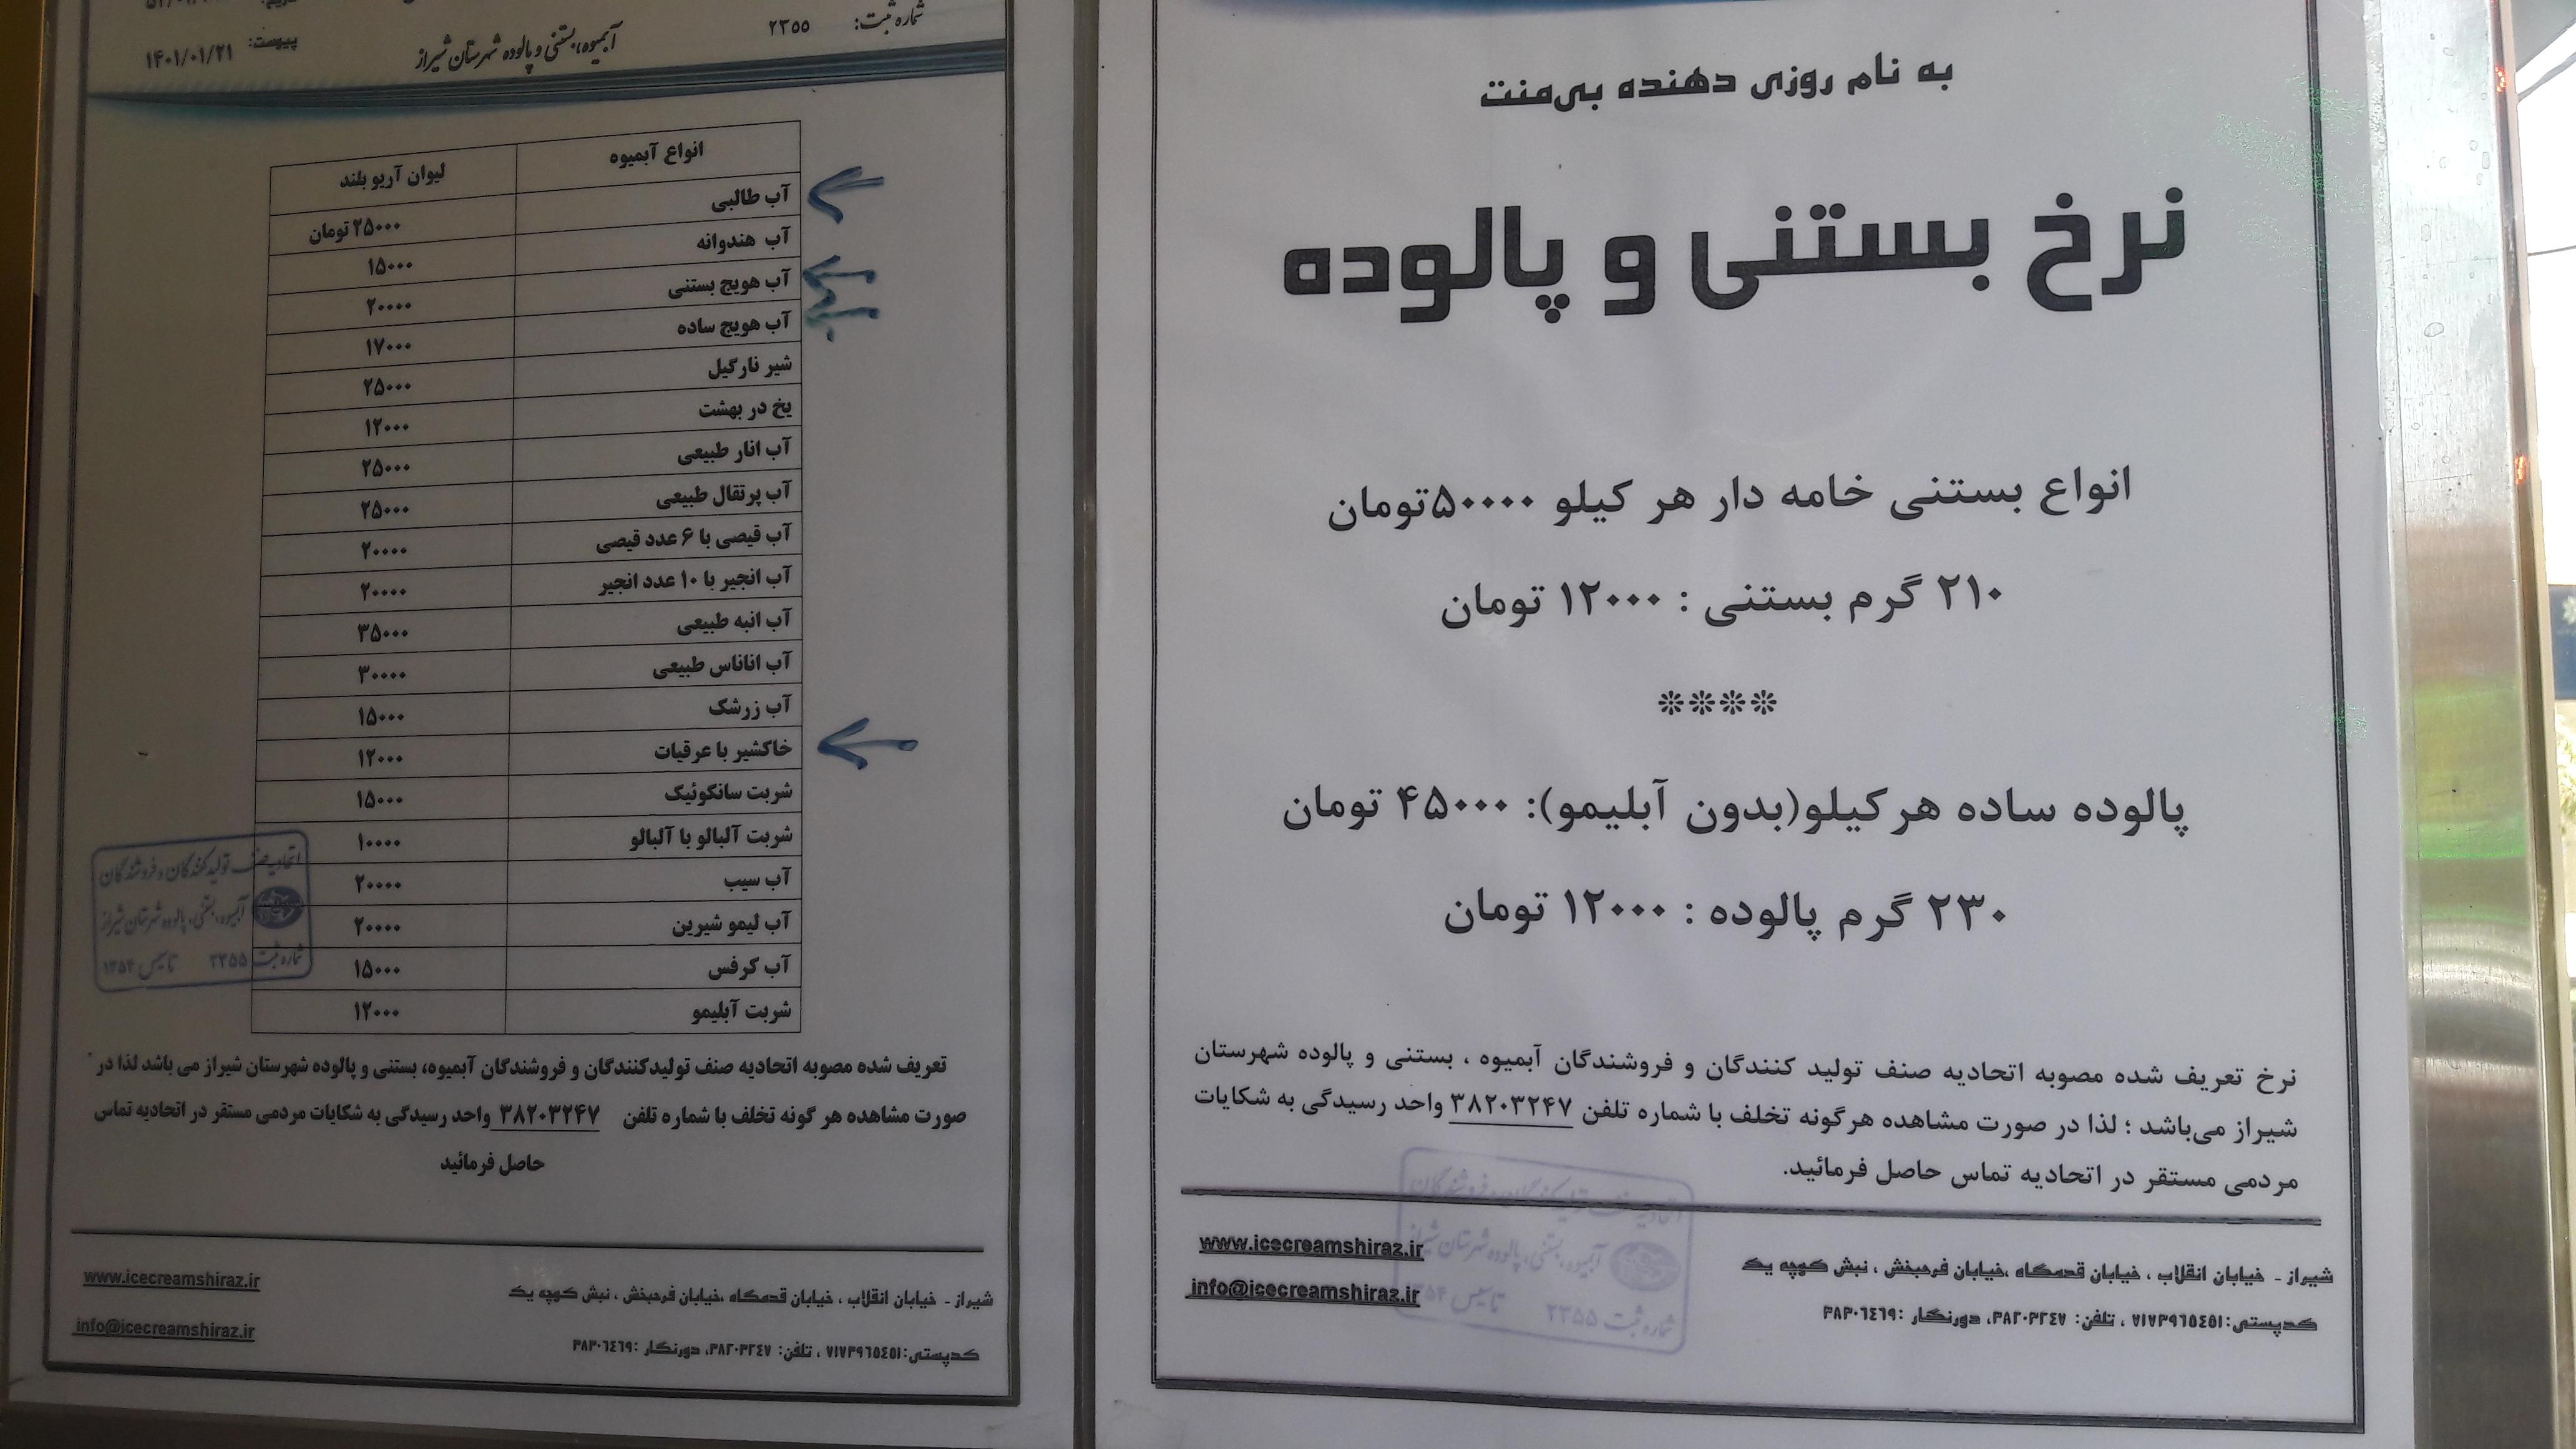 به نام روزی دهنده بی‌منت
نرخ بستنی و پالوده
انواع بستنی خامه دار هر کیلو ۵۰۰۰۰تومان
۲۱۰ گرم بستنی : ۱۲۰۰۰ تومان
****
پالوده ساده هرکیلو(بدون آبلیمو): ۴۵۰۰۰ تومان
۲۳۰ گرم پالوده : ۱۲۰۰۰ تومان
نرخ تعریف شده مصوبه اتحادیه صنف تولید کنندگان و فروشندگان آبمیوه ، بستنی و پالوده شهرستان
شیراز می‌باشد ؛ لذا در صورت مشاهده هرگونه تخلف با شماره تلفن ۳۸۲۰۳۲۴۷ واحد رسیدگی به شکایات
مردمی مستقر در اتحادیه تماس حاصل فرمائید.
شیراز - خیابان انقلاب ، خیابان قدمگاه ،خیابان فرحبخش ، نبش کوچه یک
کدپستی:۷۱۷۳۹۶۵۴۵۱ ، تلفن: ۳۸۲۰۳۲۴۷، دورنگار :۳۸۳۰۶۴۶۹
www.icecreamshiraz.ir
info@icecreamshiraz.ir
اتحادیه صنف تولیدکنندگان و فروشندگان
آبمیوه، بستنی، پالوده شهرستان شیراز
شماره ثبت ۲۳۵۵ تاسیس ۱۳۵۴
شماره ثبت: ۲۳۵۵
آبمیوه، بستنی و پالوده شهرستان شیراز
پیوست: ۱۴۰۱/۰۱/۲۱
انواع آبمیوه لیوان آریو بلند
آب طالبی ۲۵۰۰۰ تومان
آب هندوانه ۱۵۰۰۰
آب هویج بستنی ۲۰۰۰۰
آب هویج ساده ۱۷۰۰۰
شیر نارگیل ۲۵۰۰۰
یخ در بهشت ۱۲۰۰۰
آب انار طبیعی ۲۵۰۰۰
آب پرتقال طبیعی ۲۵۰۰۰
آب قیصی با ۶ عدد قیصی ۲۰۰۰۰
آب انجیر با ۱۰ عدد انجیر ۲۰۰۰۰
آب انبه طبیعی ۳۵۰۰۰
آب اناناس طبیعی ۳۰۰۰۰
آب زرشک ۱۵۰۰۰
خاکشیر با عرقیات ۱۲۰۰۰
شربت سانکوئیک ۱۵۰۰۰
شربت آلبالو با آلبالو ۱۰۰۰۰
آب سیب ۲۰۰۰۰
آب لیمو شیرین ۲۰۰۰۰
آب کرفس ۱۵۰۰۰
شربت آبلیمو ۱۲۰۰۰
اتحادیه صنف تولیدکنندگان و فروشندگان
آبمیوه، بستنی، پالوده شهرستان شیراز
شماره ثبت ۲۳۵۵ تاسیس ۱۳۵۴
تعریف شده مصوبه اتحادیه صنف تولیدکنندگان و فروشندگان آبمیوه، بستنی و پالوده شهرستان شیراز می باشد لذا در
صورت مشاهده هر گونه تخلف با شماره تلفن ۳۸۲۰۳۲۴۷ واحد رسیدگی به شکایات مردمی مستقر در اتحادیه تماس
حاصل فرمائید
شیراز - خیابان انقلاب ، خیابان قدمگاه ،خیابان فرحبخش ، نبش کوچه یک
کدپستی:۷۱۷۳۹۶۵۴۵۱ ، تلفن: ۳۸۲۰۳۲۴۷، دورنگار :۳۸۳۰۶۴۶۹
www.icecreamshiraz.ir
info@icecreamshiraz.ir